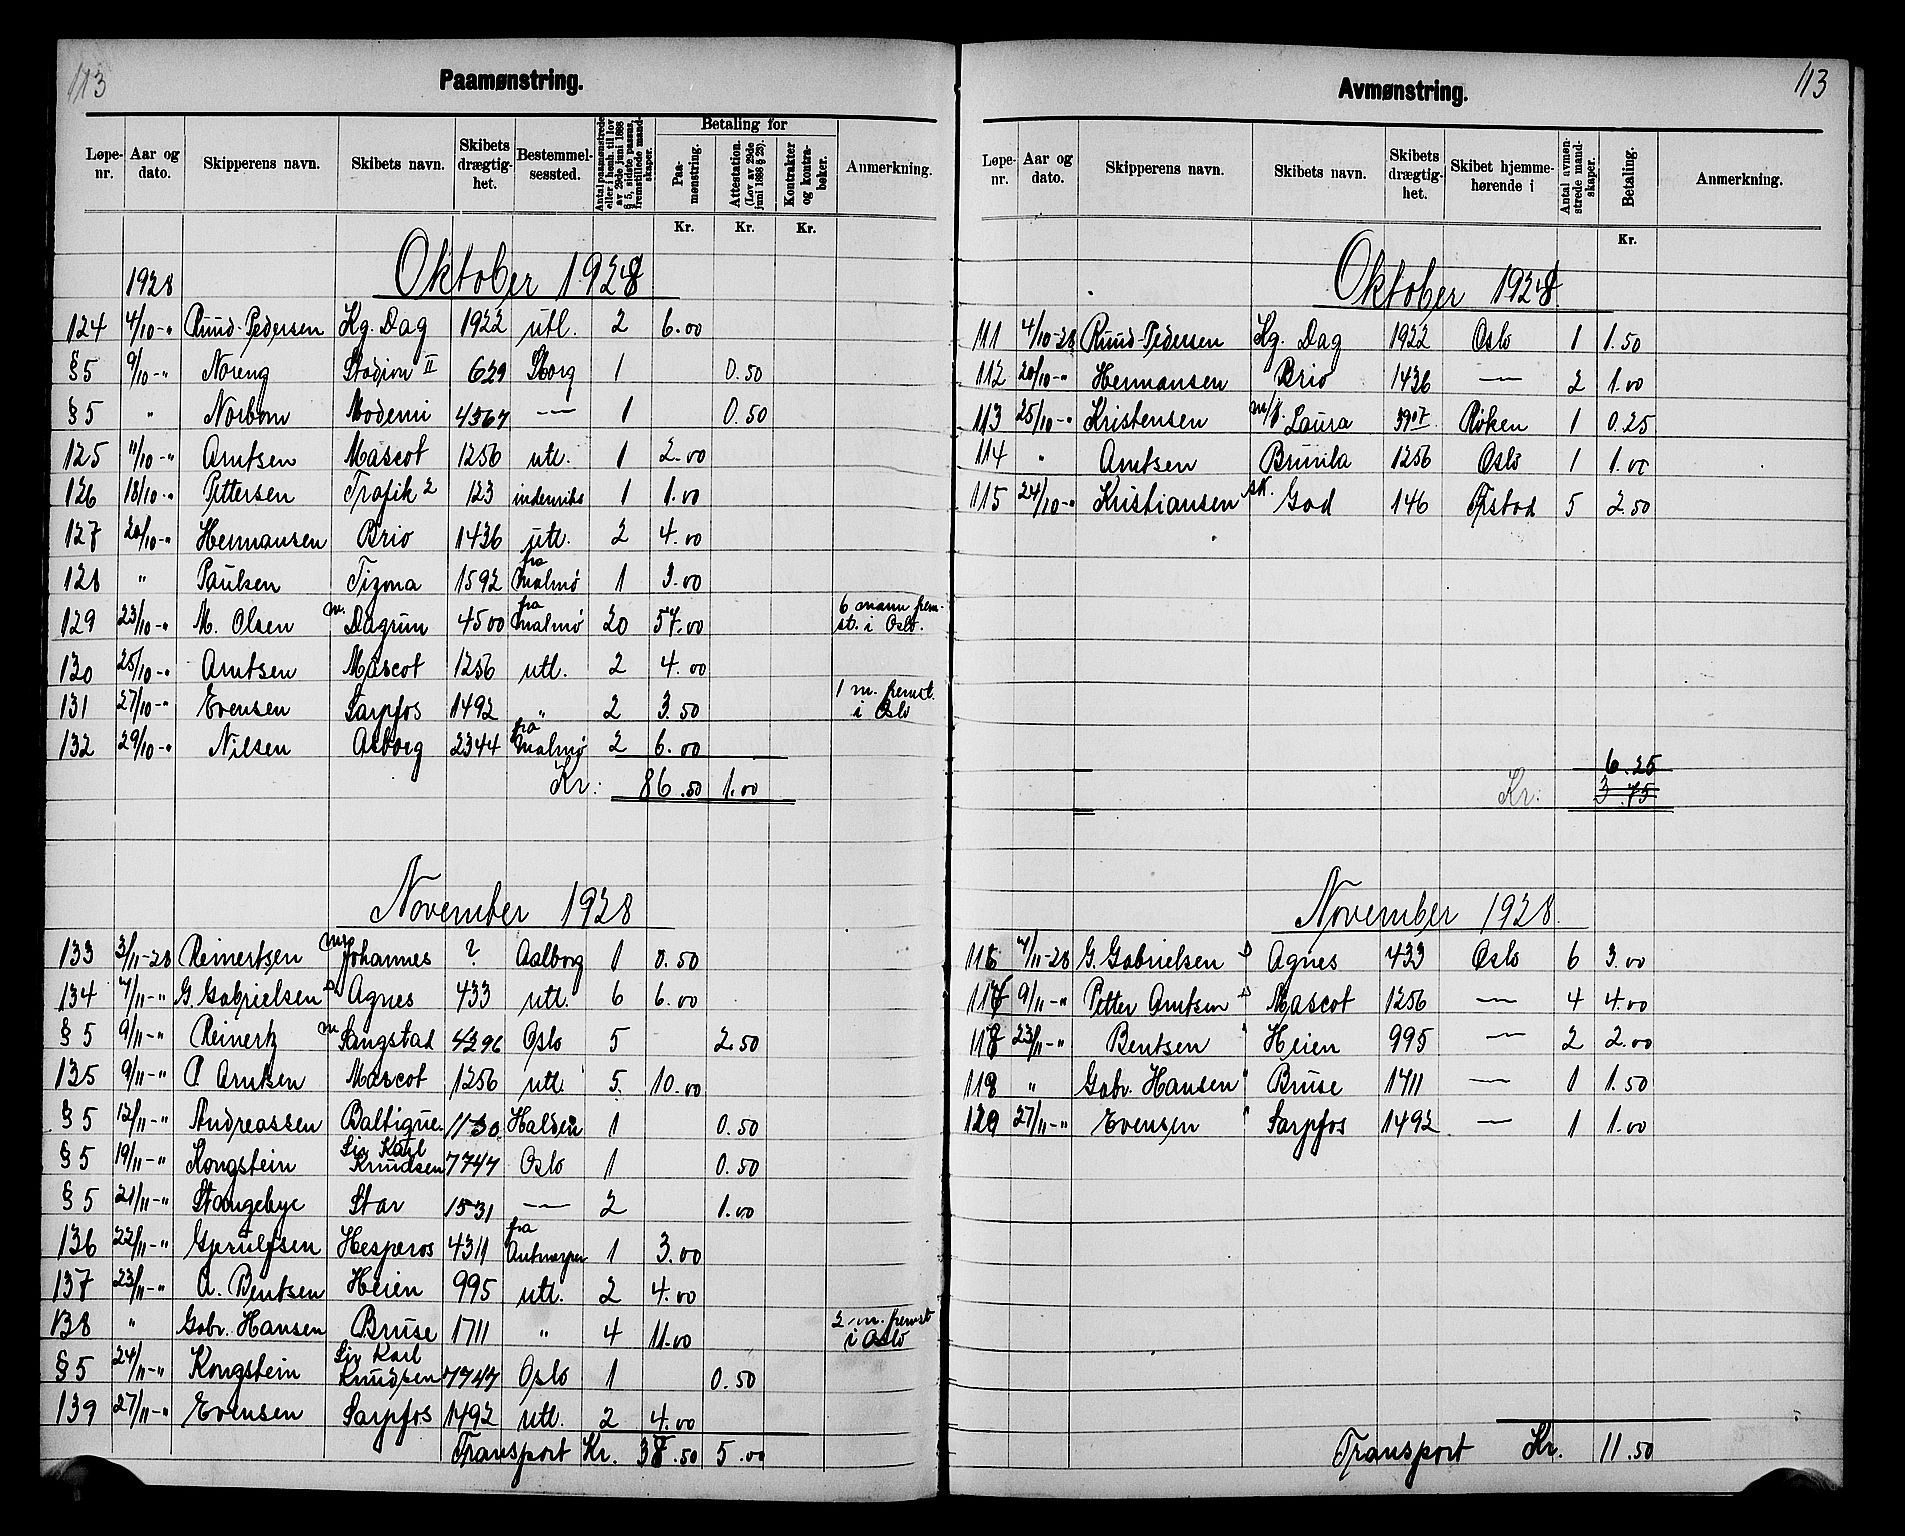 113
Paamønstring.
Løpe-nr. Aar og dato. Skipperens navn. Skibets navn. Skibets drægtig-het. Bestemmel-sessted. Antal paamønstrede eller i henh. til lov av 29de juni 1888 § 5, sidste passus, fremstillede mand-skaper. Betaling for Paa-mønstring. Attestation. (Lov av 29de juni 1888 § 23). Kontrakter og kontra-bøker. Anmerkning.
Kr. Kr. Kr.
1928 Oktober 1928
124 4/10-" Ruud-Pedersen Kg. Dag 1922 utl. 2 6.00
§5 9/10-" Noreng Stadion II 629 Sborg 1 0.50
§5 " Norbom Modemi 4567 — 1 0.50
125 11/10-" Arntsen Mascot 1256 utl. 1 2.00
126 18/10-" Pettersen Trafik 2 123 indenriks 1 1.00
127 20/10-" Hermansen Brio 1436 utl. 2 4.00
128 " Paulsen Tizona 1592 fra Malmø 1 3.00
129 23/10-" M. Olsen m. Dagrun 4500 fra Malmø 20 57.00 6 mann frem-st. i Oslo.
130 25/10-" Arntsen Mascot 1256 utl. 2 4.00
131 27/10-" Evensen Sarpfos 1492 " 2 3.50 1 m. fremst. i Oslo
132 29/10-" Nilsen Aaborg 2344 fra Malmø 2 6.00
Kr: 86.50 1.00
November 1928
133 3/11-28 Reinertsen m/ Johannes ? Aalborg 1 0.50
134 7/11-" G. Gabrielsen D Agnes 433 utl. 6 6.00
§5 9/11-" Reinertz m Sangstad 4296 Oslo 5 2.50
135 9/11-" P. Arntsen Mascot 1256 utl. 5 10.00
§5 12/11-" Andreassen Baltique 1130 Halden 1 0.50
§5 19/11-" Kongstein Siv Karl Knudsen 7747 Oslo 1 0.50
§5 21/11-" Stangebye Star 1531 — 2 1.00
136 22/11-" Gjerulfsen Hesperos 4311 fra Antwerpen 1 3.00
137 23/11-" A. Bentsen Heien 995 utl. 2 4.00
138 " Gabr. Hansen Bruse 1711 " 4 11.00 2 m. fremst i Oslo
§5 24/11-" Kongstein Siv Karl Knudsen 7747 Oslo 1 0.50
139 27/11-" Evensen Sarpfos 1492 utl. 2 4.00
Transport Kr. 38.50 5.00
113
Avmønstring.
Løpe-nr. Aar og dato. Skipperens navn. Skibets navn. Skibets drægtig-het. Skibet hjemme-hørende i Antal avmøn-strede mand-skaper. Betaling. Anmerkning.
Kr.
Oktober 1928.
111 4/10-28 Ruud-Pedersen Kg. Dag 1922 Oslo 1 1.50
112 20/10-" Hermansen Brio 1436 — 2 1.00
113 25/10-" Kristensen m/ Laura 3917 Røken 1 0.25
114 " Arntsen Brunla 1256 Oslo 1 1.00
115 24/10-" Kristiansen sk. God 146 Frstad 5 2.50
6.25
Kr: 3.75
November 1928.
116 7/11-28 G. Gabrielsen D Agnes 433 Oslo 6 3.00
117 9/11-" Petter Arntsen D Mascot 1256 — 4 4.00
118 23/11-" Bentsen " Heien 995 — 2 2.00
119 " Gabr. Hansen " Bruse 1711 — 1 1.50
120 27/11-" Evensen " Sarpfos 1492 — 1 1.00
Transport Kr. 11.50